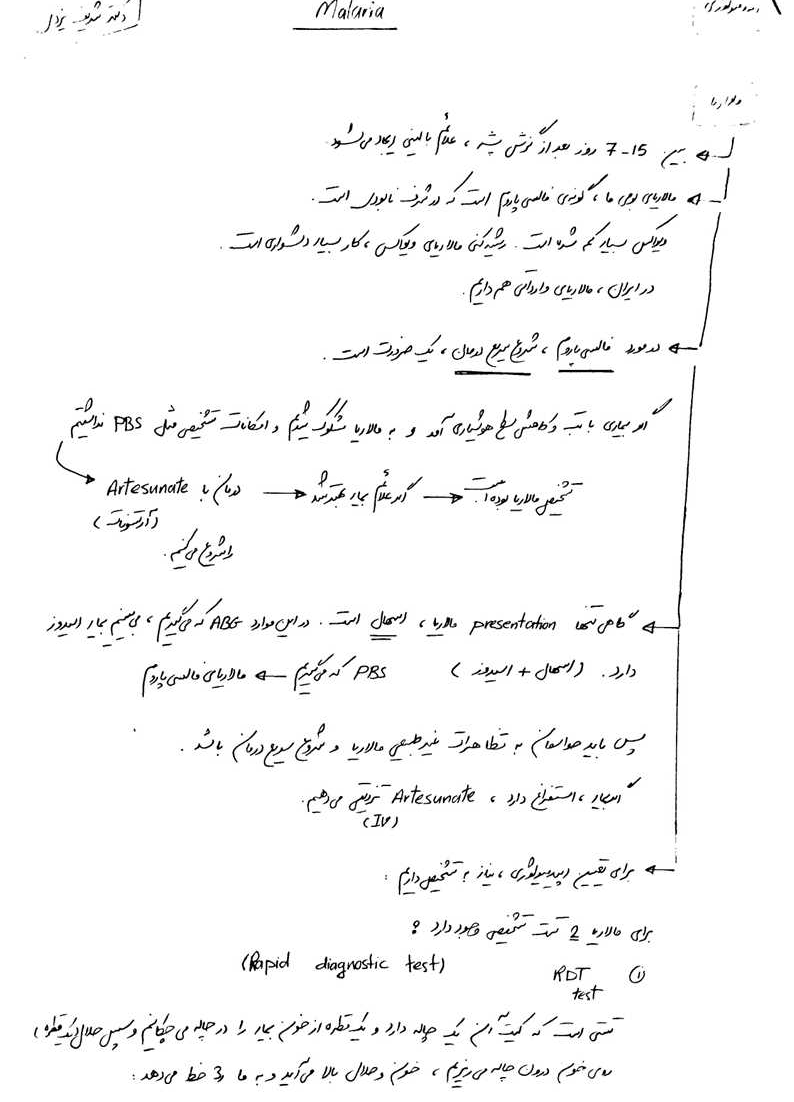 Malaria
دکتر شریف یزدی
بین 7-15 روز بعد از گزش پشه ، علائم بالینی ایجاد می‌شود.
مالاریای بومی ما ، گونه‌ی فالسی‌پاروم است که در شرف نابودی است.
ویواکس بسیار کم شده است. ریشه‌کنی مالاریای ویواکس ، کار بسیار دشواری است.
در ایران ، مالاریای وارداتی هم داریم.
در مورد فالسی‌پاروم ، شروع سریع درمان ، یک ضرورت است.
اگر بیماری با تب و کاهش سطح هوشیاری آمد و به مالاریا مشکوک شدیم و امکانات تشخیصی مثل PBS نداشتیم
درمان با Artesunate → اگر علائم بیمار بهتر شد → تشخیص مالاریا بوده است.
(آرتسونات)
را شروع می‌کنیم.
گاهی تنها presentation مالاریا ، اسهال است. در این موارد ABG که می‌گیریم ، می‌بینیم بیمار اسیدوز
دارد. (اسهال + اسیدوز) PBS که می‌گیریم ← مالاریای فالسی‌پاروم
پس باید حواسمان به تظاهرات غیرطبیعی مالاریا و شروع سریع درمان باشد.
اگر بیمار ، استفراغ دارد ، Artesunate تزریقی می‌دهیم.
(IV)
برای تعیین اپیدمیولوژی ، نیاز به تشخیص داریم :
برای مالاریا 2 تست تشخیصی وجود دارد :
① RDT test (Rapid diagnostic test)
تستی است که کیت آن یک چاله دارد و یک قطره از خون بیمار را در چاله می‌چکانیم و سپس حلال (یک قطره)
روی خون درون چاله می‌ریزیم ، خون و حلال بالا می‌آید و به ما 3 خط می‌دهد :